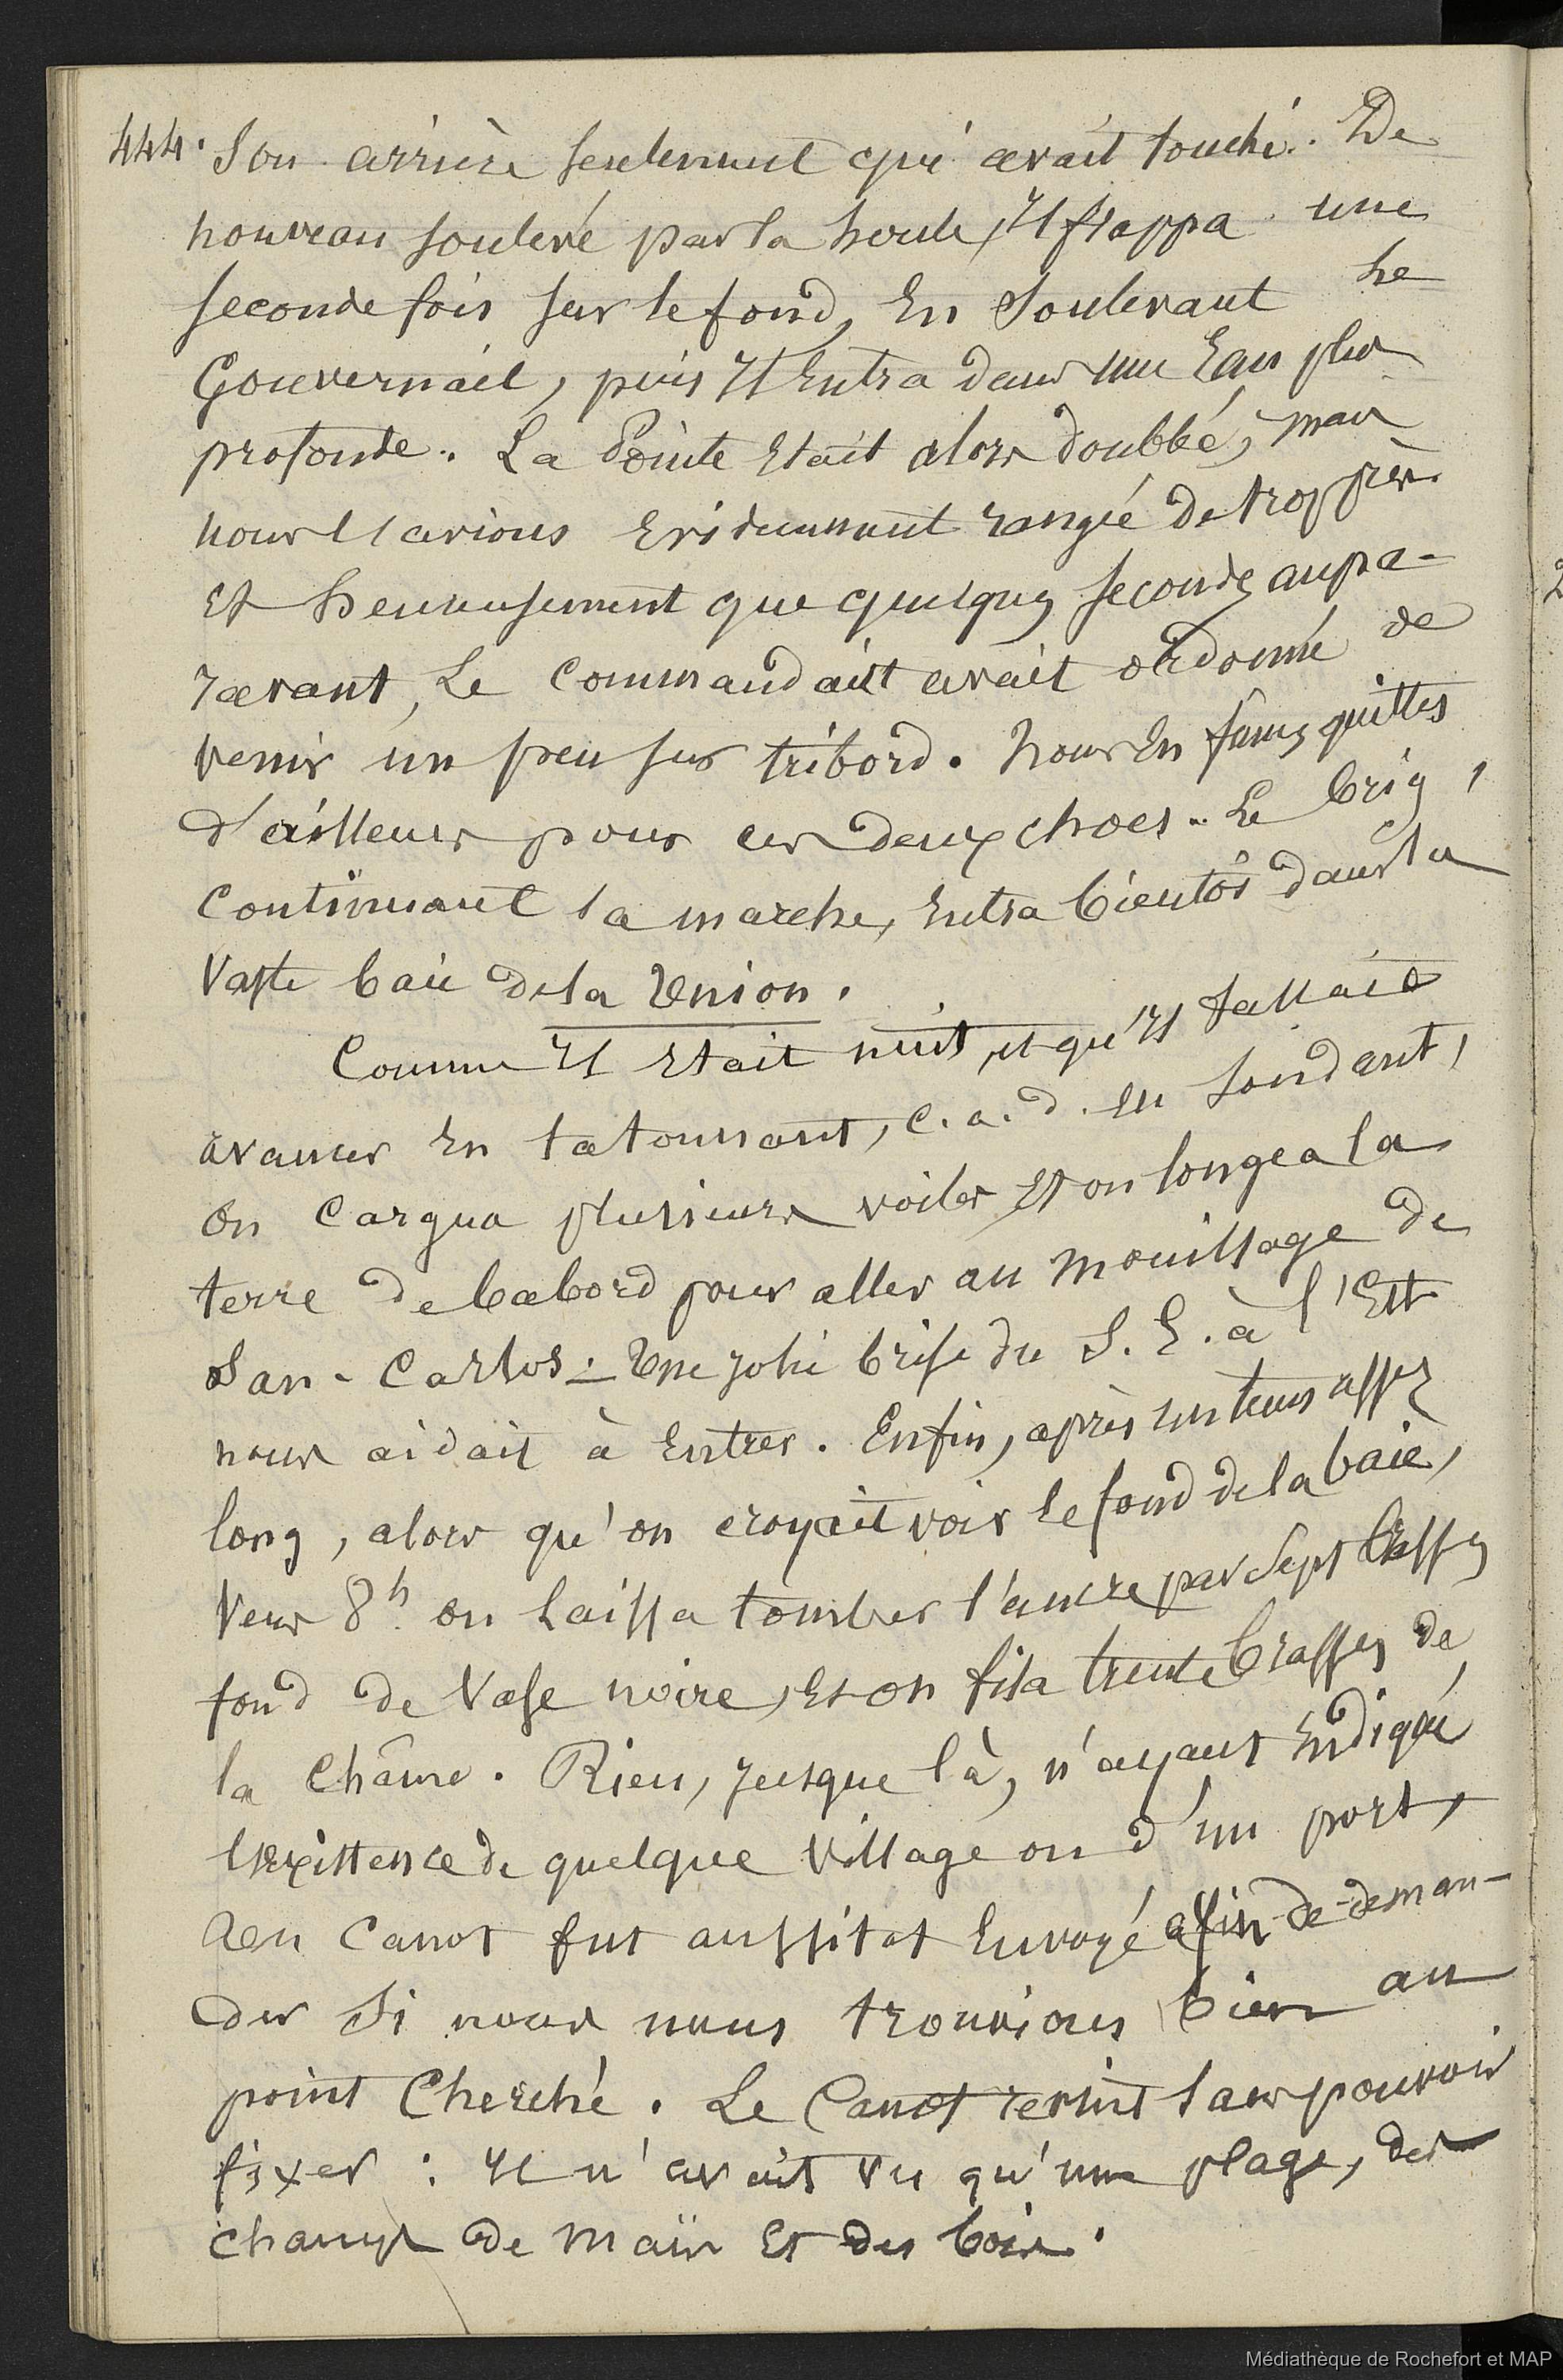 444. Son arrière seulement qui avait touché. De
nouveau soulevé par la houle, Il frappa une
seconde fois sur le fond, En soulevant le
Gouvernail, puis Il Entra dans une Eau plus
profonde. La Pointe Etait alors doublée, mais
nous l'avions Evidemment rangée de trop près.
Et heureusement que quelques secondes aupa-
ravant, Le Commandant avait ordonné de
venir un peu sur tribord. Nous En fûmes quittes
d'ailleurs pour ces deux chocs. Le brig,
Continuant sa marche, Entra bientôt dans la
Vaste baie de la Union.
Comme Il Etait nuit, et qu'Il fallait
avancer En tatonnant, c.a.d. en sondant,
on Cargua plusieurs voiles Et on longea la
terre de babord pour aller au mouillage de
San-Carlos. Une jolie brise du S.E. à l'Est
nous aidait à Entrer. Enfin, après un tems assez
long, alors qu'on croyait voir le fond de la baie,
Vers 8h. on laissa tomber l'ancre par Sept Brasses
fond de Vase noire, Et on fila trente brasses de
la Chaîne. Rien, jusque là, n'ayant Indiqué
l'Existence de quelque Village ou d'un port,
Un Canot fut aussitot Envoyé afin de deman-
der Si nous nous trouvions bien au
point Cherché. Le Canot revint sans pouvoir
fixer : Il n'avait vu qu'une plage, des
champs de Maïs Et des bois.
Médiathèque de Rochefort et MAP